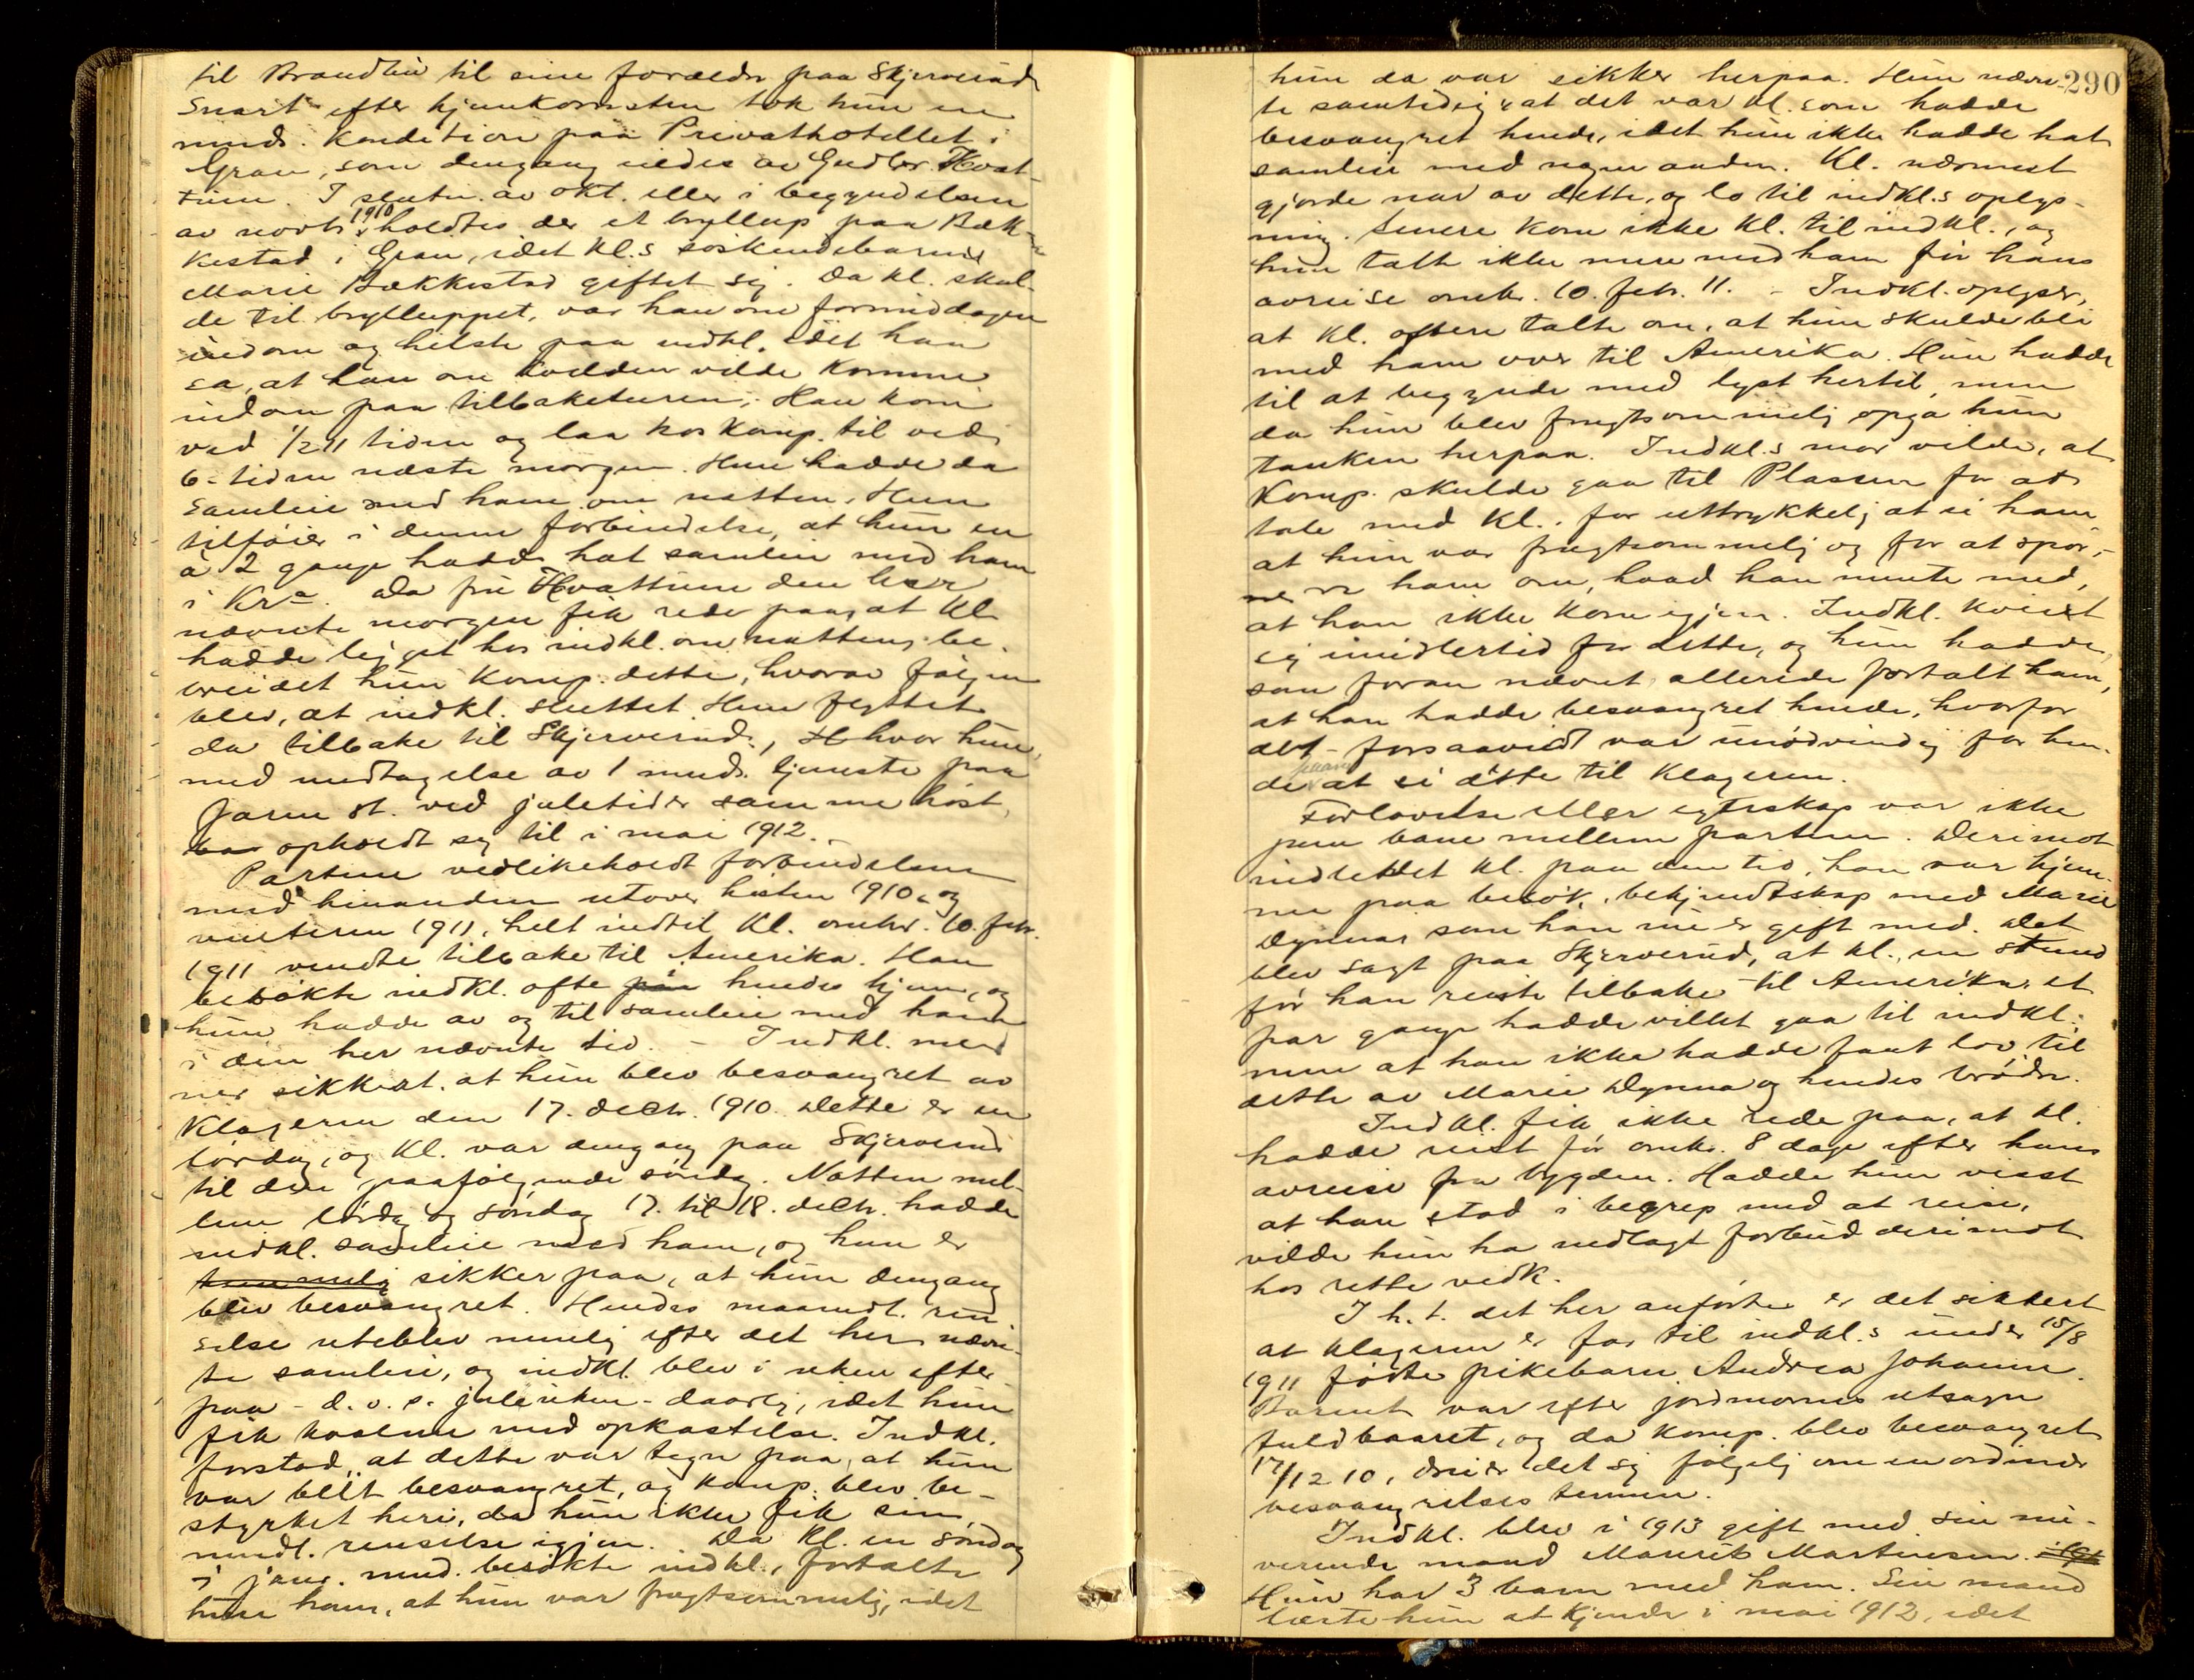 til Brandbu til sine forældre paa Skjerverud
Snart efter hjemkomsten tok hun en
mnds. kondition paa Privathotellet i
Gran, som dengang eiedes av Gudbr. Hvat-
tum. I slutn. av okt. eller i begyndelsen
av novbr. 1910 holdtes der et bryllup paa Bæk-
kestad i Gran, idet kl.s søskendebarn
Marie Bækkestad giftet sig. Da kl. skul-
de til brylluppet, var han om formiddagen
indom og hilste paa indkl. idet han
sa, at han om kvelden vilde komme
indom paa tilbaketuren. Han kom
ved 1/2 11 tiden og laa hos komp. til ved
6-tiden næste morgen. Hun hadde da
samleie med ham om natten. Hun
tilføier i denne forbindelse, at hun en
à 2 gange hadde hat samleie med ham
i Kra. Da fru Hvattum den her
nævnte morgen fik rede paa, at kl.
hadde ligget hos indkl. om natten, be-
breidet hun komp. dette, hvorav følgen
blev, at indkl. sluttet. Hun flyttet
da tilbake til Skjerverud, hvor hun,
med undtagelse av 1 mnds. tjeneste paa
Jaren st. ved juletider samme høst,
opholdt sig til i mai 1912.
Partene vedlikeholdt forbindelsen
med hinanden utover høsten 1910 og
vinteren 1911, helt indtil kl. omkr. 10. febr.
1911 vendte tilbake til Amerika. Han
besøkte indkl. ofte paa hendes hjem, og
hun hadde av og til samleie med ham
i den her nævnte tid. - Indkl. me-
ner sikkert, at hun blev besvangret av
klageren den 17. decbr. 1910. Dette er en
lørdag, og kl. var dengang paa Skjerverud
til den paafølgende søndag. Natten mel-
lem lørdag og søndag 17. til 18. decbr. hadde
indkl. samleie med ham, og hun er
temmelig sikker paa, at hun dengang
blev besvangret. Hendes maanedl. ren-
selse uteblev nemlig efter det her nævn-
te samleie, og indkl. blev i uken efter-
paa - d.v.s. juleuken - daarlig, idet hun
fik kvalme med opkastelse. Indkl.
forstod, at dette var tegn paa, at hun
var blit besvangret, og komp. blev be-
styrket heri, da hun ikke fik sin
mndl. renselse igjen. Da kl. en søndag
i jan. mnd. besøkte indkl., fortalte
hun ham, at hun var frugtsommelig, idet
290
hun da var sikker herpaa. Hun nævn-
te samtidig at det var kl. som hadde
besvangret hende, idet hun ikke hadde hat
samleie med nogen anden. Kl. nærmest
gjorde nar av dette, og lo til indkl.s oplys-
ning. Senere kom ikke kl. til indkl., og
hun talte ikke mere med ham før hans
avreise omkr. 10. febr. 11. - Indkl. oplyser,
at kl. oftere talte om, at hun skulde bli
med ham over til Amerika. Hun hadde
til at begynde med lyst hertil, men
da hun blev frugtsommelig opga hun
tanken herpaa. Indkl.s mor vilde, at
komp. skulde gaa til Plassen for at
tale med kl., for uttrykkelig at si ham
at hun var frugtsommelig og for at spør-
re ham om, hvad han mente med,
at han ikke kom igjen. Indkl. kviet
sig imidlertid for dette, og hun hadde,
som foran nævnt, allerede fortalt ham,
at han hadde besvangret hende, hvorfor
det forsaavidt var unødvendig for hen-
de at si dette til klageren.
Forlovelse eller egteskap var ikke
paa bane mellem partene. Derimot
indledet kl. paa den tid, han var hjem-
me paa besøk, bekjendtskap med Marie
Dynna, som han nu er gift med. Det
blev sagt paa Skjerverud, at kl., en stund
før han reiste tilbake til Amerika, et
par gange hadde villet gaa til indkl.,
men at han ikke hadde faat lov til
dette av Marie Dynna og hendes brødre.
Indkl. fik ikke rede paa, at kl.
hadde reist før omkr. 8 dage efter hans
avreise fra bygden. Hadde hun visst
at han stod i begrep med at reise,
vilde hun ha nedlagt forbud derimot
hos rette vedk.
I h. t. det her anførte er det sikkert
at klageren er far til indkl.s under 15/8
1911 fødte pikebarn Andrea Johanne.
Barnet var efter jordmorens utsagn
fuldbaaret, og da komp. blev besvangret
17/12 10, dreier det sig følgelig om en ordinær
besvangrelsestermin.
Indkl. blev i 1913 gift med sin nu-
værende mand Maurits Martinsen.
Hun har 3 barn med ham. Sin mand
lærte hun at kjende i mai 1912, idet